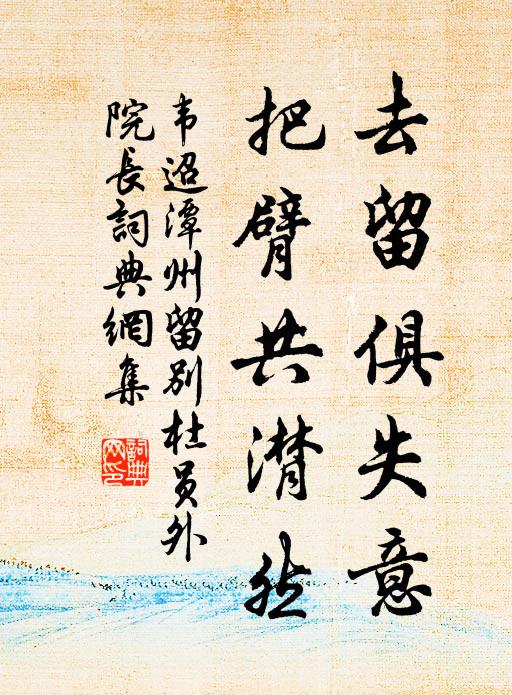 去留俱失意
把臂共潸然
韦迢潭州留别杜员外
院長詞典網集
詞典